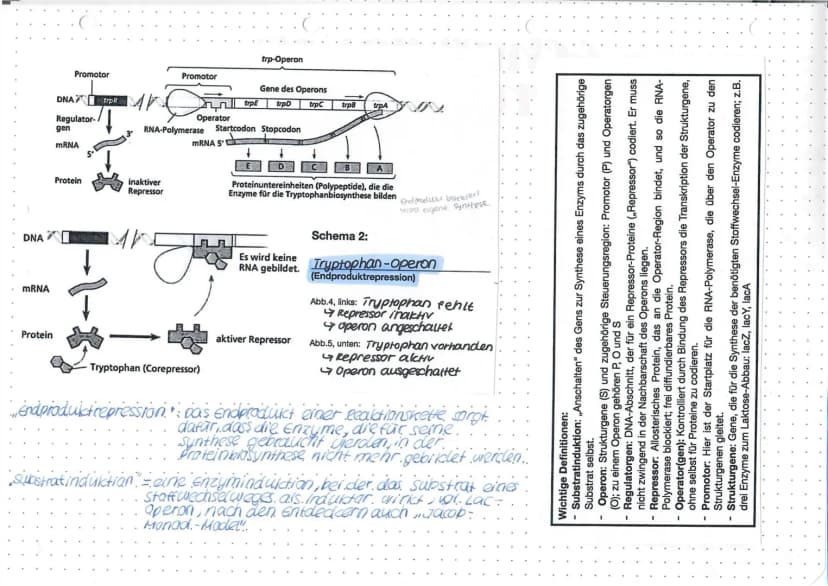 trp-Operon
Promotor
Promotor
Gene des Operons
DNA
trpR
trpE
trpD
trpC
trpB
trpA
Regulator-
gen
Operator
RNA-Polymerase
Startcodon
Stopcodon
mRNA
3'
5'
mRNA 5'
E
D
C
B
A
Protein
inaktiver
Repressor
Proteinuntereinheiten (Polypeptide), die die
Enzyme für die Tryptophanbiosynthese bilden
Endprodukt blockiert
seine eigene Synthese
DNA
Es wird keine
RNA gebildet.
mRNA
Protein
aktiver Repressor
Tryptophan (Corepressor)
Schema 2:
Tryptophan-Operon
(Endproduktrepression)
Abb.4, links: Tryptophan fehlt
↳ Repressor inaktiv
↳ Operon angeschaltet
Abb.5, unten: Tryptophan vorhanden
↳ Repressor aktiv
↳ Operon ausgeschaltet
„Endproduktrepression": Das Endprodukt einer Reaktionskette sorgt
dafür, dass die Enzyme, die für seine
Synthese gebraucht werden, in der
Proteinbiosynthese nicht mehr gebildet werden.
„Substratinduktion" = eine Enzyminduktion, bei der das Substrat eines
Stoffwechselweges als Induktor wirkt, vgl. Lac-
Operon, nach den Entdeckern auch „Jacob-
Monod-Modell"
Wichtige Definitionen:
- Substratinduktion: „Anschalten" des Gens zur Synthese eines Enzyms durch das zugehörige
Substrat selbst.
- Operon: Strukturgene (S) und zugehörige Steuerungsregion: Promotor (P) und Operatorgen
(O); zu einem Operon gehören P, O und S
- Regulatorgen: DNA-Abschnitt, der für ein Repressor-Proteine („Repressor") codiert. Er muss
nicht zwingend in der Nachbarschaft des Operons liegen.
- Repressor: Allosterisches Protein, das an die Operator-Region bindet, und so die RNA-
Polymerase blockiert; frei diffundierbares Protein.
- Operator(gen): Kontrolliert durch Bindung des Repressors die Transkription der Strukturgene,
ohne selbst für Proteine zu codieren.
- Promotor: Hier ist der Startplatz für die RNA-Polymerase, die über den Operator zu den
Strukturgenen gleitet.
- Strukturgene: Gene, die für die Synthese der benötigten Stoffwechsel-Enzyme codieren; z.B.
drei Enzyme zum Laktose-Abbau: lacZ, lacY, lacA